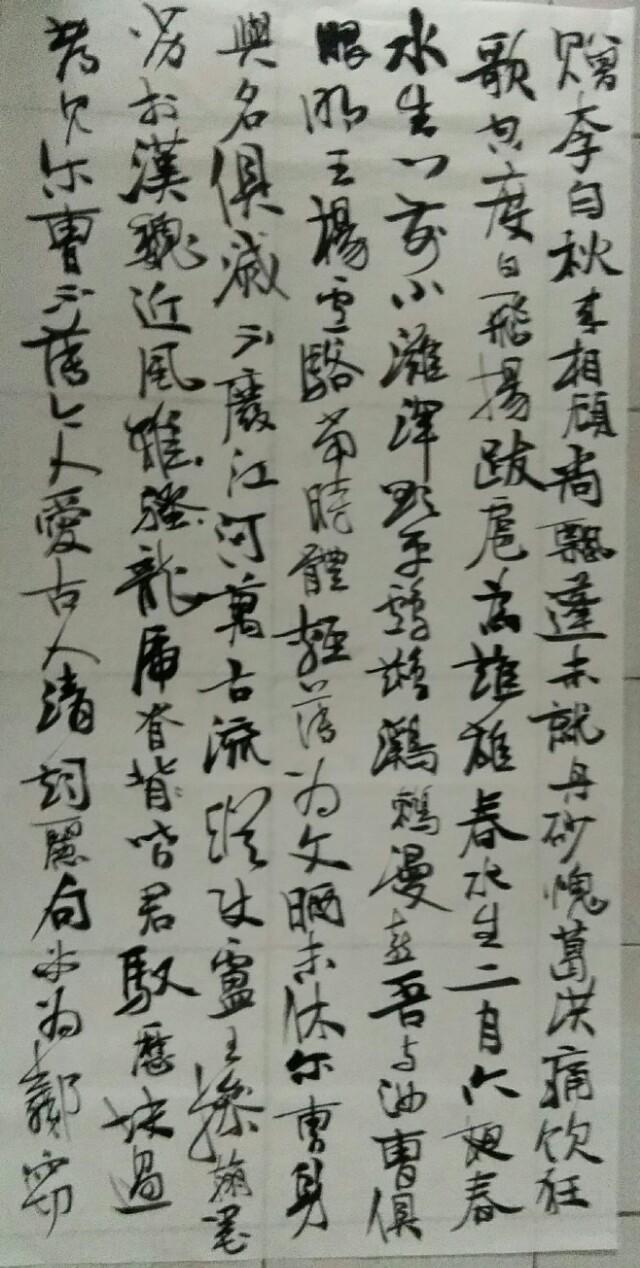 贈李白秋来相顧尚飄蓬未就丹砂愧葛洪痛飲狂
歌空度日飛揚跋扈為誰雄春水生二月六夜春
水生门前小灘渾欲平鸕鶿鸂鶒漫喜吾与汝曹俱
眼明王楊盧駱當時體輕薄为文哂未休尔曹身
與名俱滅不廢江河萬古流縱使盧王操翰墨
劣於漢魏近風騷龍虎脊背皆君馭歷塊過
都見尔曹不薄今人愛古人清詞麗句必为鄰窃